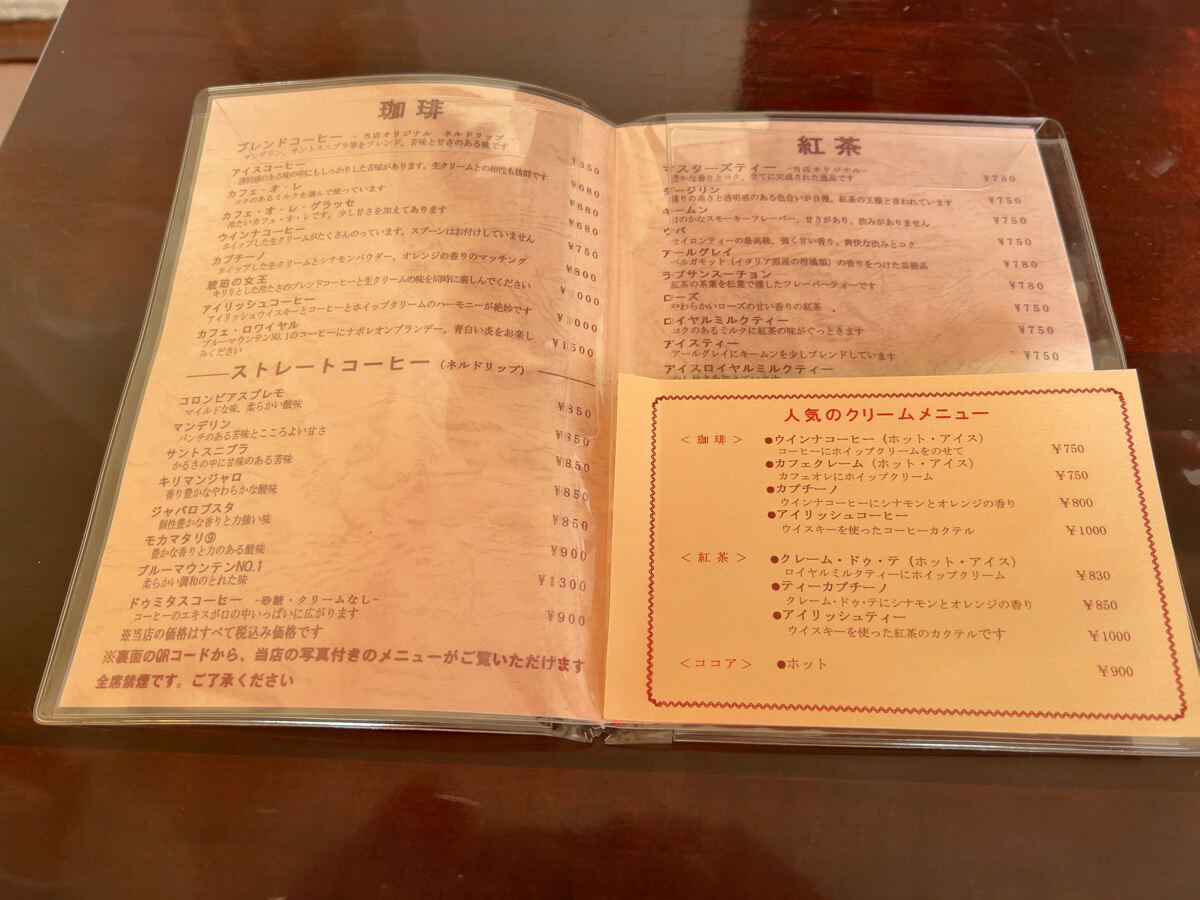 珈琲
ブレンドコーヒー -当店オリジナル ネルドリップ-
マンデリン、サントスニブラ等をブレンド。苦味と甘さのある味です
アイスコーヒー
透明感のある味の中にもしっかりした苦味があります。生クリームとの相性も抜群です
¥680
カフェ・オ・レ
コクのあるミルクを選んで使っています
¥680
カフェ・オ・レ・グラッセ
冷たいカフェ・オ・レです。少し甘さを加えてあります
¥680
ウインナコーヒー
ホイップした生クリームがたくさんのっています。スプーンはお付けしていません
¥750
カプチーノ
ホイップした生クリームとシナモンパウダー、オレンジの香りのマッチング
¥800
琥珀の女王
キリリとした冷たさのブレンドコーヒーと生クリームの味を同時に楽しんでください
¥1000
アイリッシュコーヒー
アイリッシュウイスキーとコーヒーとホイップクリームのハーモニーが絶妙です
¥1000
カフェ・ロワイヤル
ブルーマウンテンNO.1のコーヒーにナポレオンブランデー。青白い炎をお楽し
みください
¥1500
ストレートコーヒー(ネルドリップ)
コロンビアスプレモ
マイルドな味、柔らかい酸味
¥850
マンデリン
パンチのある苦味とこころよい甘さ
¥850
サントスニブラ
かるさの中に甘味のある苦味
¥850
キリマンジャロ
香り豊かなやわらかな酸味
¥850
ジャバロブスタ
個性豊かな香りと力強い味
¥850
モカマタリ⑨
豊かな香りと力のある酸味
¥900
ブルーマウンテンNO.1
柔らかい調和のとれた味
¥1300
ドゥミタスコーヒー -砂糖・クリームなし-
コーヒーのエキスが口の中いっぱいに広がります
¥900
※当店の価格はすべて税込み価格です
※裏面のQRコードから、当店の写真付きのメニューがご覧いただけます
全席禁煙です。ご了承ください
紅茶
マスターズティー -当店オリジナル-
豊かな香りとコク、全てに完成された逸品です
¥750
ダージリン
香りの高さと透明感のある色合いが自慢。紅茶の王様と言われています
¥750
キームン
ほのかなスモーキーフレーバー。甘さがあり、渋みがありません
¥750
ウバ
セイロンティーの最高級。強く甘い香り、爽快な渋みとコク
¥750
アールグレイ
ベルガモッド(イタリア原産の柑橘類)の香りをつけた芸術品
¥780
ラプサンスーチョン
紅茶の茶葉を松葉で燻したフレーバーティーです
¥780
ローズ
やわらかいローズの甘い香りの紅茶
¥750
ロイヤルミルクティー
コクのあるミルクに紅茶の味がぐっときます
¥750
アイスティー
アールグレイにキームンを少しブレンドしています
¥750
アイスロイヤルミルクティー
少し甘さを加えています
人気のクリームメニュー
<珈琲> ●ウインナコーヒー(ホット・アイス)
コーヒーにホイップクリームをのせて
¥750
●カフェクレーム(ホット・アイス)
カフェオレにホイップクリーム
¥750
●カプチーノ
ウインナコーヒーにシナモンとオレンジの香り
¥800
●アイリッシュコーヒー
ウイスキーを使ったコーヒーカクテル
¥1000
<紅茶> ●クレーム・ドゥ・テ(ホット・アイス)
ロイヤルミルクティーにホイップクリーム
¥830
●ティーカプチーノ
クレーム・ドゥ・テにシナモンとオレンジの香り
¥850
●アイリッシュティー
ウイスキーを使った紅茶のカクテルです
¥1000
<ココア> ●ホット
¥900